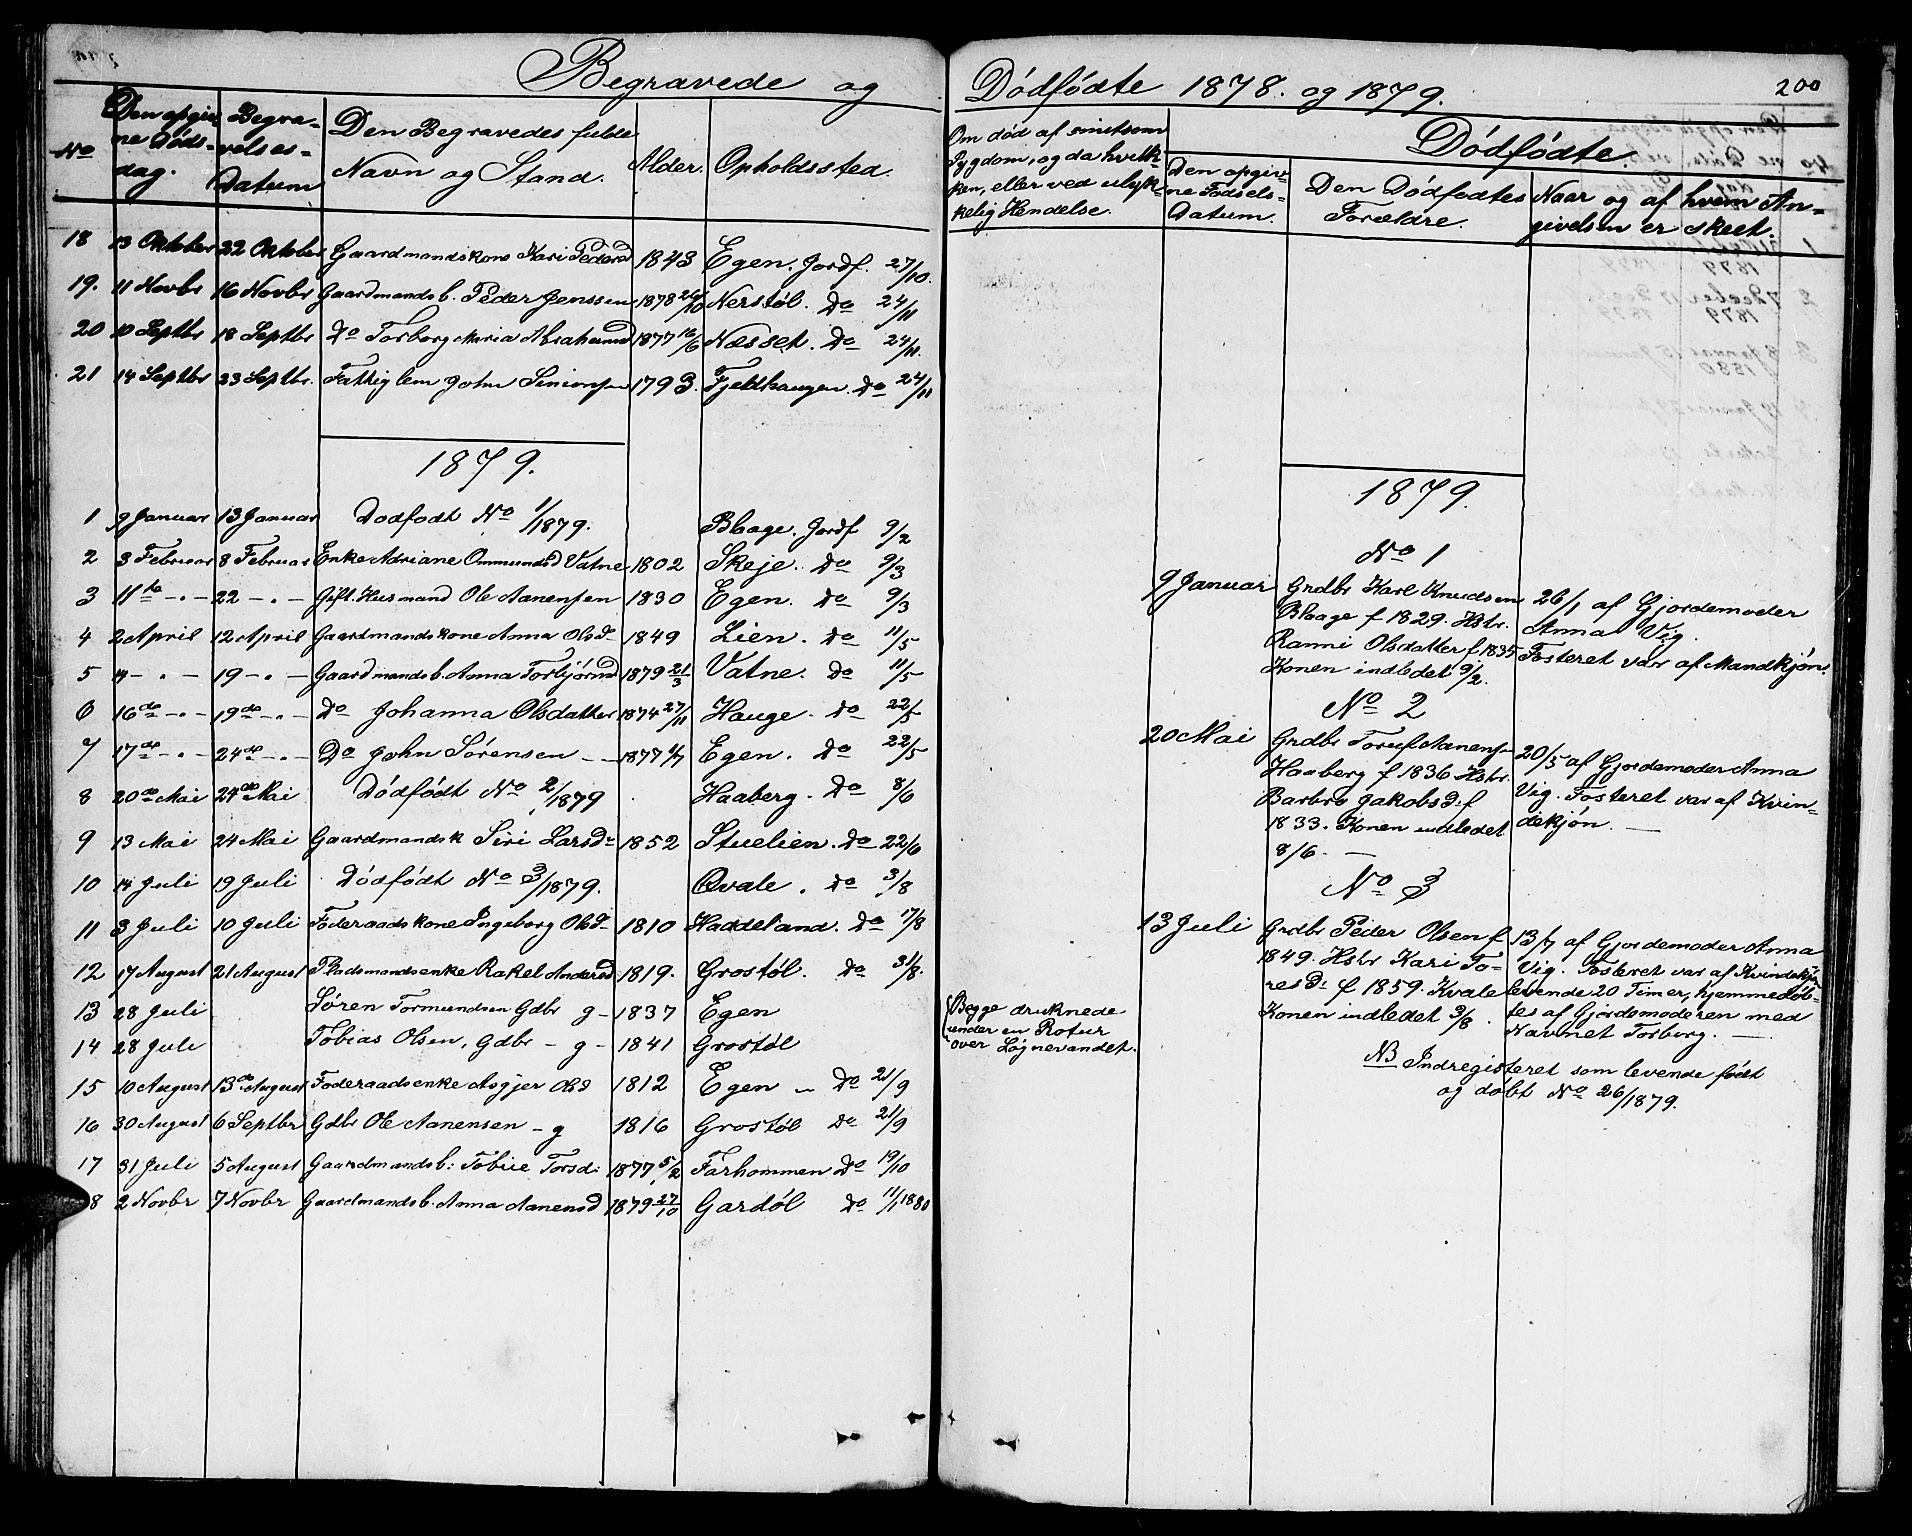 Begravede og
No
Den opgiv- ne Døds- dag.
Begra- velses- Datum
Den Begravedes fulde Navn og Stand.
Alder.
Opholdssted.
18 13 Oktober 22 Oktober Gaardmandskone Kari Pedersd 1843 Egen. Jordf. 27/10.
19. 11 Novbr 16 Novbr Gaardmandsb. Peder Jenssen 1878 26/10 Nerstøl. Do 24/11
20 10 Septbr 18 Septbr Do Torborg Maria Abrahamsd 1877 16/6 Næsset. Do 24/11.
21 14 Septbr 23 Septbr. Fattiglem John Simonsen 1793. Fjeldhaugen. Do 24/11
1879.
1 9 Januar 13 Januar Dødfødt No 1/1879. Blaage. Jordf 9/2
2 3 Februar 8 Februar Enke Adriane Ommundsd Vatne 1802 Skeje. Do 9/3
3 11te - " - 22 - " - Gift. Husmand Ole Aanensen 1830 Egen. Do 9/3
4 2 April 12 April Gaardmandskone Anna Olsd 1849 Lien. Do 11/5
5 4 - " - 19 - " - Gaardmandsb. Anna Torbjørnsd 1879 21/3 Vatne. Do 11/5
6 16de - " - 19de - " - Do Johanna Olsdatter 1874 27/11 Hauge. Do 22/5
7 17de - " - 24de - " - Do John Sørensen - - 1877 4/7 Egen. Do 22/5
8 20de Mai 24de Mai Dødfødt No 2/1879 Haaberg. Do 8/6
9 13 Mai 24 Mai Gaardmandsk Siri Larsd 1852 Stuelien. Do 22/6
10 14 Juli 19 Juli Dødfødt No 3/1879. Qvale. Do 3/8
11 3 Juli 10 Juli Føderaadskone Ingeborg Olsd 1810 Haddeland. Do 17/8
12 17 August 21 August Pladsmandsenke Rakel Andersd 1819. Grostøl. Do 31/8.
13 28 Juli Søren Tormundsen Gdbr g - 1837 Egen
14 28 Juli Tobias Olsen, Gdbr - g - 1841 Grostøl
15 10 August 13de August Føderaadsenke Asgjer Olsd 1812 Egen - Do 21/9
16 30 August 6 Septbr Gdbr Ole Aanensen - g 1816 Grostøl Do 21/9
17 31 Juli 5 August Gaardmandsb: Tobie Torsd: 1877 5/2 Farhommen Do 19/10
8 2 Novbr 7 Novbr Gaardmandsb. Anna Aanensd 1879 27/10 Gardøl Do 11/1 1880
Dødfødte 1878. og 1879.
200
Om død af smitsom
Sygdom, og da hvilk-
ken, eller ved ulyk-
kelig Hendelse.
Dødfødte.
Den opgiv-
ne Fødsels-
Datum.
Den Dødfødtes
Forældre.
Naar og af hvem An-
givelsen er skeet.
1879.
No 1
9 Januar
Grdbr Karl Knudsen
Blaage f 1829. Hstr.
Ranni Olsdatter f. 1835
Konen indledet 9/2.
26/1 af Gjordemoder
Anna Vig.
Fosteret var af Mandkjøn.
No 2
20 Mai
Grdbr Toruf Aanens-
Haaberg f 1836 Hstr.
Barbro Jakobsd. f
1833. Konen indledet
8/6. —
20/5 af Gjordemoder Anna
Vig. Fosteret var af Kvin-
dekjøn. —
No 3
13 Juli
Grdbr Peder Olsen f
1849. Hstr Kari To-
resd: f 1859. Kvale
Konen indledet 3/8.
13/7 af Gjordemoder Anna
Vig. Fosteret var af Kvindekjøn
levende 20 Timer, hjemmedøb-
tes af Gjordemoderen med
Navnet Torborg. —
{Begge druknede
under en Rotur
over Løgnevandet.
NB Indregisteret som levende født
og døbt No 26/1879.